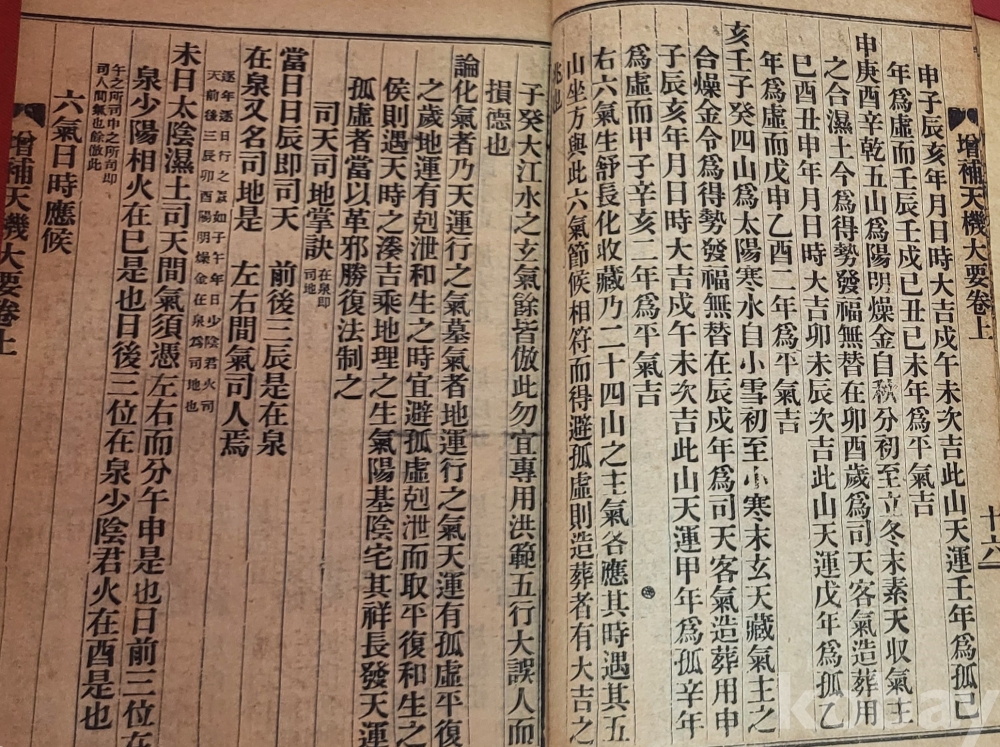 增補天機大要卷上
十六
申子辰亥年月日時大吉戌午未次吉此山天運壬年爲孤己
年爲虛而壬辰壬戌己丑己未年爲平氣吉
申庚酉辛乾五山爲陽明燥金自秋分初至立冬末素天收氣主
之合濕土今爲得勢發福無替在卯酉歲爲司天客氣造葬用
巳酉丑申年月日時大吉卯未辰次吉此山天運戊年爲孤乙
年爲虛而戊申乙酉二年爲平氣吉
亥壬子癸四山爲太陽寒水自小雪初至小寒末玄天藏氣主之
合燥金令爲得勢發福無替在辰戌年爲司天客氣造葬用申
子辰亥年月日時大吉戌午未次吉此山天運甲年爲孤辛年
爲虛而甲子辛亥二年爲平氣吉
右六氣生舒長化收藏乃二十四山之主氣各應其時遇其五
山坐方與此六氣節候相符而得避孤虛則造葬者有大吉之
兆也
子癸大江水之玄氣餘皆倣此勿宜專用洪範五行大誤人而
損德也
論化氣者乃天運行之氣墓氣者地運行之氣天運有孤虛平復
之歲地運有剋泄和生之時宜避孤虛剋泄而取平復和生之
侯則遇天時之湊吉乘地理之生氣陽基陰宅其祥長發天運
孤虛者當以革邪勝復法制之
司天司地掌訣 在泉即司地
當日日辰即司天 前後三辰是在泉
在泉又名司地是 左右間氣司人焉
逐年逐日行之如子午年日少陰君火司
天前後三辰卯酉陽明燥金在泉爲司地也
未日太陰濕土司天間氣須憑左右而分午申是也日前三位在
泉少陽相火在巳是也日後三位在泉少陰君火在酉是也
午之所司申之所司即
司人間氣也餘倣此
六氣日時應候
增補天機大要卷上